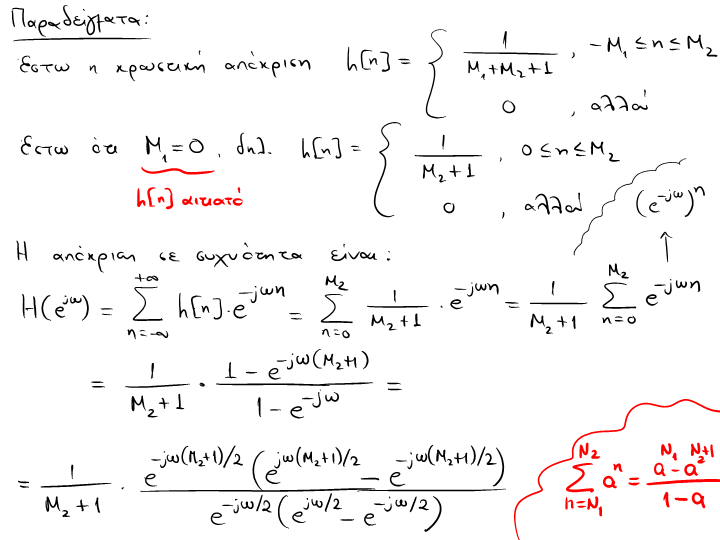 Παραδείγματα:
Έστω η κρουστική απόκριση h[n] = { 1/(M₁+M₂+1) , -M₁ ≤ n ≤ M₂
0 , αλλού
Έστω ότι M₁=0, δηλ. h[n] = { 1/(M₂+1) , 0 ≤ n ≤ M₂
h[n] αιτιατό
0 , αλλού
(e^{-jω})^n
Η απόκριση σε συχνότητα είναι:
H(e^{jω}) = ∑_{n=-∞}^{+∞} h[n]·e^{-jωn} = ∑_{n=0}^{M₂} 1/(M₂+1) · e^{-jωn} = 1/(M₂+1) ∑_{n=0}^{M₂} e^{-jωn}
= 1/(M₂+1) · (1 - e^{-jω(M₂+1)})/(1 - e^{-jω}) =
= 1/(M₂+1) · (e^{-jω(M₂+1)/2} (e^{jω(M₂+1)/2} - e^{-jω(M₂+1)/2}))/(e^{-jω/2} (e^{jω/2} - e^{-jω/2}))
∑_{n=N₁}^{N₂} a^n = (a^{N₁} - a^{N₂+1})/(1-a)